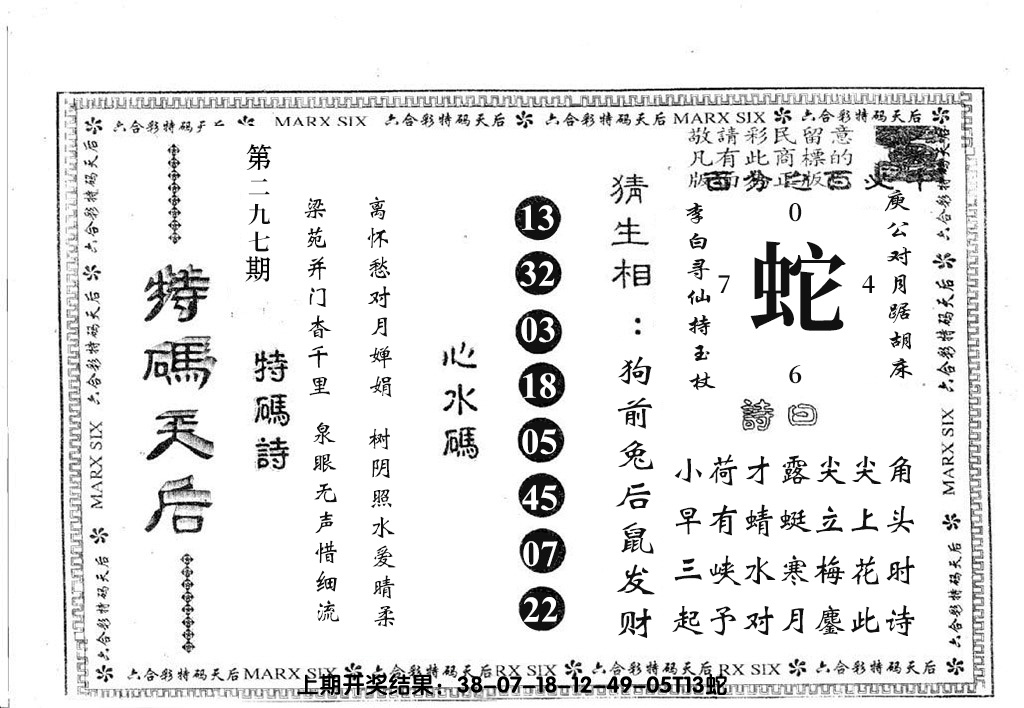 六合彩特码天后 MARX SIX 六合彩特码天后 六合彩特码天后 MARX SIX 六合彩特码天后
敬請彩民留意
凡有此商標的
版面为正版
百分之百必中
庚公对月踞胡床
0
7 蛇 4
6
李白寻仙持玉杖
詩曰
小荷才露尖尖角
早有蜻蜓立上头
三峡水寒梅花时
起予对月鏖此诗
猜生相：狗前兔后鼠发财
13
32
03
18
05
45
07
22
心水碼
离怀愁对月婵娟 树阴照水爱晴柔
梁苑并门杳千里 泉眼无声惜细流
特碼詩
第二九七期
特碼天后
六合彩特码天后
六合彩特码天后
MARX SIX
六合彩特码天后
六合彩特码天后
六合彩特码天后
MARX SIX
六合彩特码天后
六合彩特码天后 MARX SIX 六合彩特码天后 RX SIX 六合彩特码天后 RX SIX 六合彩特码天后
上期开奖结果：38-07-18-12-49-05T13蛇